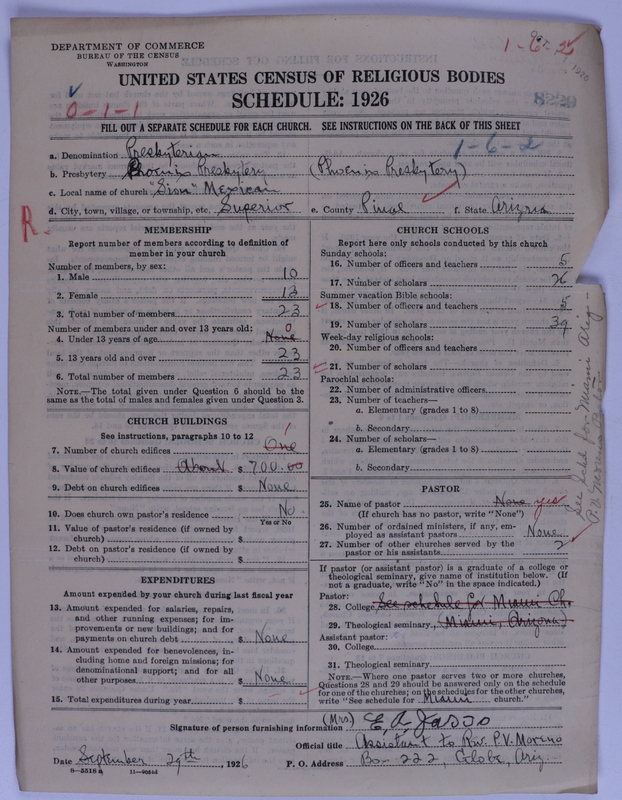 DEPARTMENT OF COMMERCE
BUREAU OF THE CENSUS
WASHINGTON
1-6-2
0-1-1
8229
UNITED STATES CENSUS OF RELIGIOUS BODIES
SCHEDULE: 1926
FILL OUT A SEPARATE SCHEDULE FOR EACH CHURCH. SEE INSTRUCTIONS ON THE BACK OF THIS SHEET
1-6-2
a. Denomination Presbyterian
b. Presbytery Phoenix Presbytery (Phoenix Presbytery)
c. Local name of church "Sion" Mexican
d. City, town, village, or township, etc. Superior e. County Pinal f. State Arizona
R.
MEMBERSHIP
Report number of members according to definition of
member in your church
Number of members, by sex:
1. Male 10
2. Female 13
3. Total number of members 23
Number of members under and over 13 years old: 0
4. Under 13 years of age None
5. 13 years old and over 23
6. Total number of members 23
NOTE.—The total given under Question 6 should be the
same as the total of males and females given under Question 3.
CHURCH BUILDINGS
See instructions, paragraphs 10 to 12
1
7. Number of church edifices One
8. Value of church edifices About $ 700.00
9. Debt on church edifices $ None
10. Does church own pastor's residence? No
Yes or No
11. Value of pastor's residence (if owned by
church) $
12. Debt on pastor's residence (if owned by
church) $
EXPENDITURES
Amount expended by your church during last fiscal year
13. Amount expended for salaries, repairs,
and other running expenses; for im-
provements or new buildings; and for
payments on church debt $ None
14. Amount expended for benevolences, in-
cluding home and foreign missions; for
denominational support; and for all
other purposes $ None
15. Total expenditures during year $
CHURCH SCHOOLS
Report here only schools conducted by this church
Sunday schools:
16. Number of officers and teachers 5
17. Number of scholars 26
Summer vacation Bible schools:
18. Number of officers and teachers 5
19. Number of scholars 39
Week-day religious schools:
20. Number of officers and teachers
21. Number of scholars
Parochial schools:
22. Number of administrative officers
23. Number of teachers—
a. Elementary (grades 1 to 8)
b. Secondary
24. Number of scholars—
a. Elementary (grades 1 to 8)
b. Secondary
PASTOR
25. Name of pastor None yes
(If church has no pastor, write "None")
26. Number of ordained ministers, if any, em-
ployed as assistant pastors None
27. Number of other churches served by the
pastor or his assistants 2
If pastor (or assistant pastor) is a graduate of a college or
theological seminary, give name of institution below. (If
not a graduate, write "No" in the space indicated.)
Pastor:
28. College See schedule for Miami Ch.
29. Theological seminary Miami, Arizona
Assistant pastor:
30. College
31. Theological seminary
NOTE.—Where one pastor serves two or more churches,
Questions 28 and 29 should be answered only on the schedule
for one of the churches; on the schedules for the other churches,
write "See schedule for Miami church."
See sched for Miami Ariz—
P.V. Moreno Pastor
Signature of person furnishing information (Mrs) E. A. Jasso
Official title Assistant to Rev. P.V. Moreno
Date September 29th, 1926 P. O. Address Box 222, Globe, Ariz.
8—5518a 11—9054d